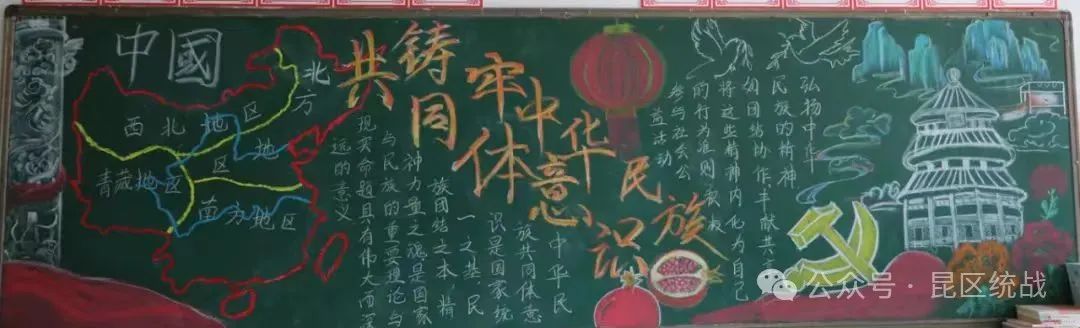 中國
北方
西北地区
地区
青藏地区
南方地区
铸牢中华民族
共同体意识
中华民
族共同体意
识是国家统
一之基民
族团结之本,精
神力量之魂是国家
与民族的重要理论与
现实命题且有伟大而深
远的意义
弘扬中华
民族的精神
如团结协作丰献共
将这些精神内化为自己
的行为准则积极
参与社会公
益活动
公众号·昆区统战